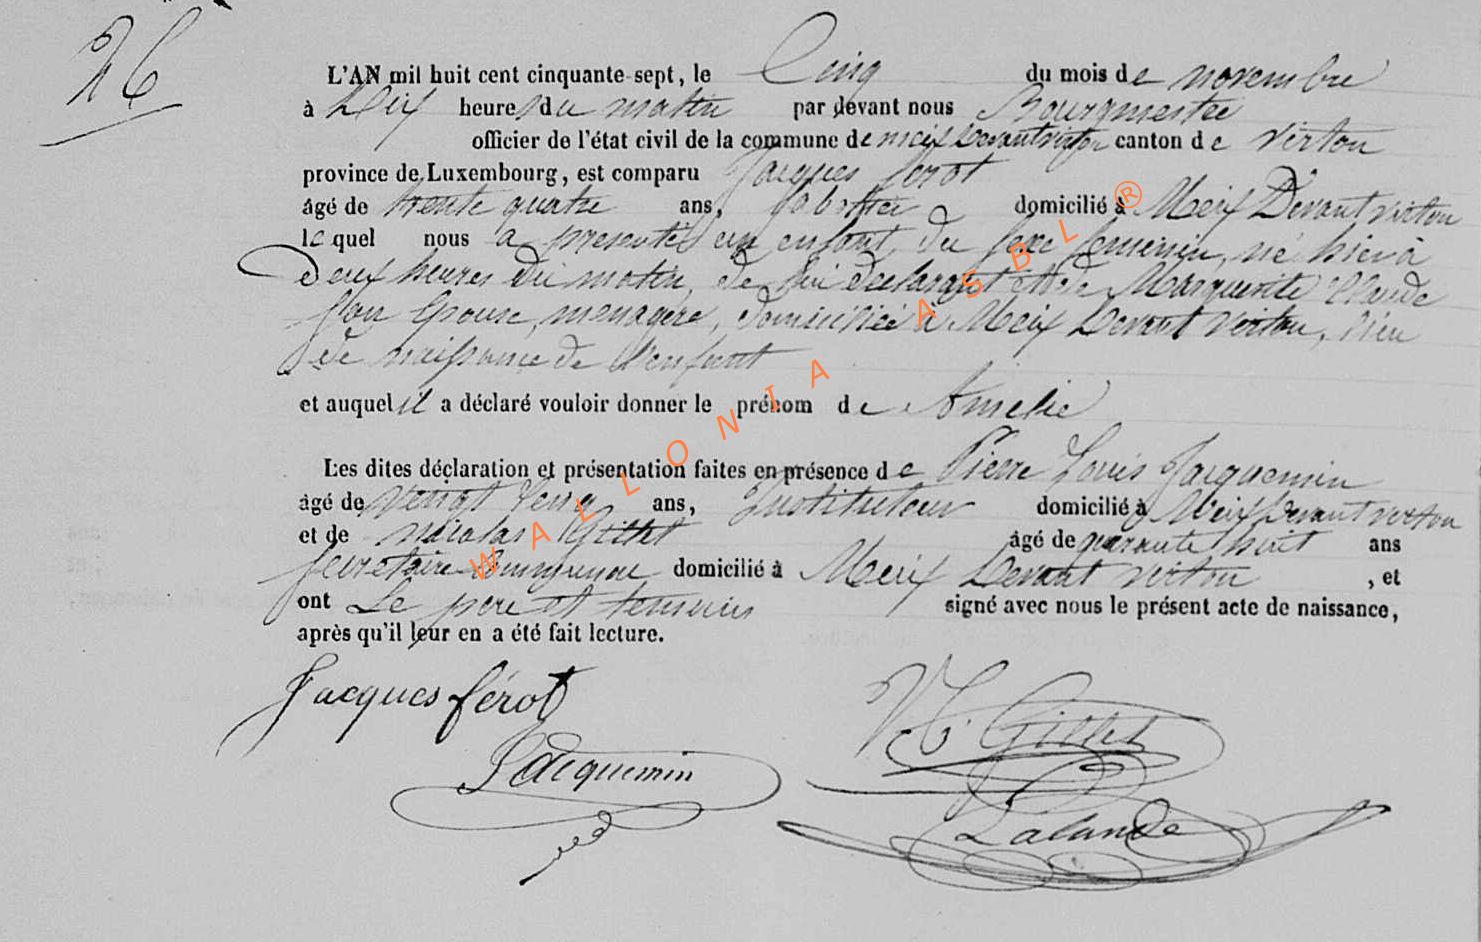 26
L'AN mil huit cent cinquante-sept, le Cinq du mois de novembre
à Dix heures du matin par devant nous Bourgmestre
officier de l'état civil de la commune de meix Devant virton canton de virton
province de Luxembourg, est comparu Jacques ferot
âgé de trente quatre ans, domicilié à Meix Devant virton
le quel nous a presenté un enfant du sexe feminin, né hier à
Deux heures du matin, de lui declarant et de Marguerite Claude
son Epouse, menagere, domiciliée à Meix Devant virton, lieu
de naissance de l'enfant
et auquel il a déclaré vouloir donner le prénom de Amelie
Les dites déclaration et présentation faites en présence de Pierre Louis Jacquemin
âgé de ans, Instituteur domicilié à Meix Devant virton
et de nicolas Gillet âgé de quarante huit ans
secretaire communal domicilié à Meix Devant virton, et
ont Le pere et temoins signé avec nous le présent acte de naissance,
après qu'il leur en a été fait lecture.
Jacques férot
N. Gillet
Jacquemin
Lalande
WALLONIA ASBL ®